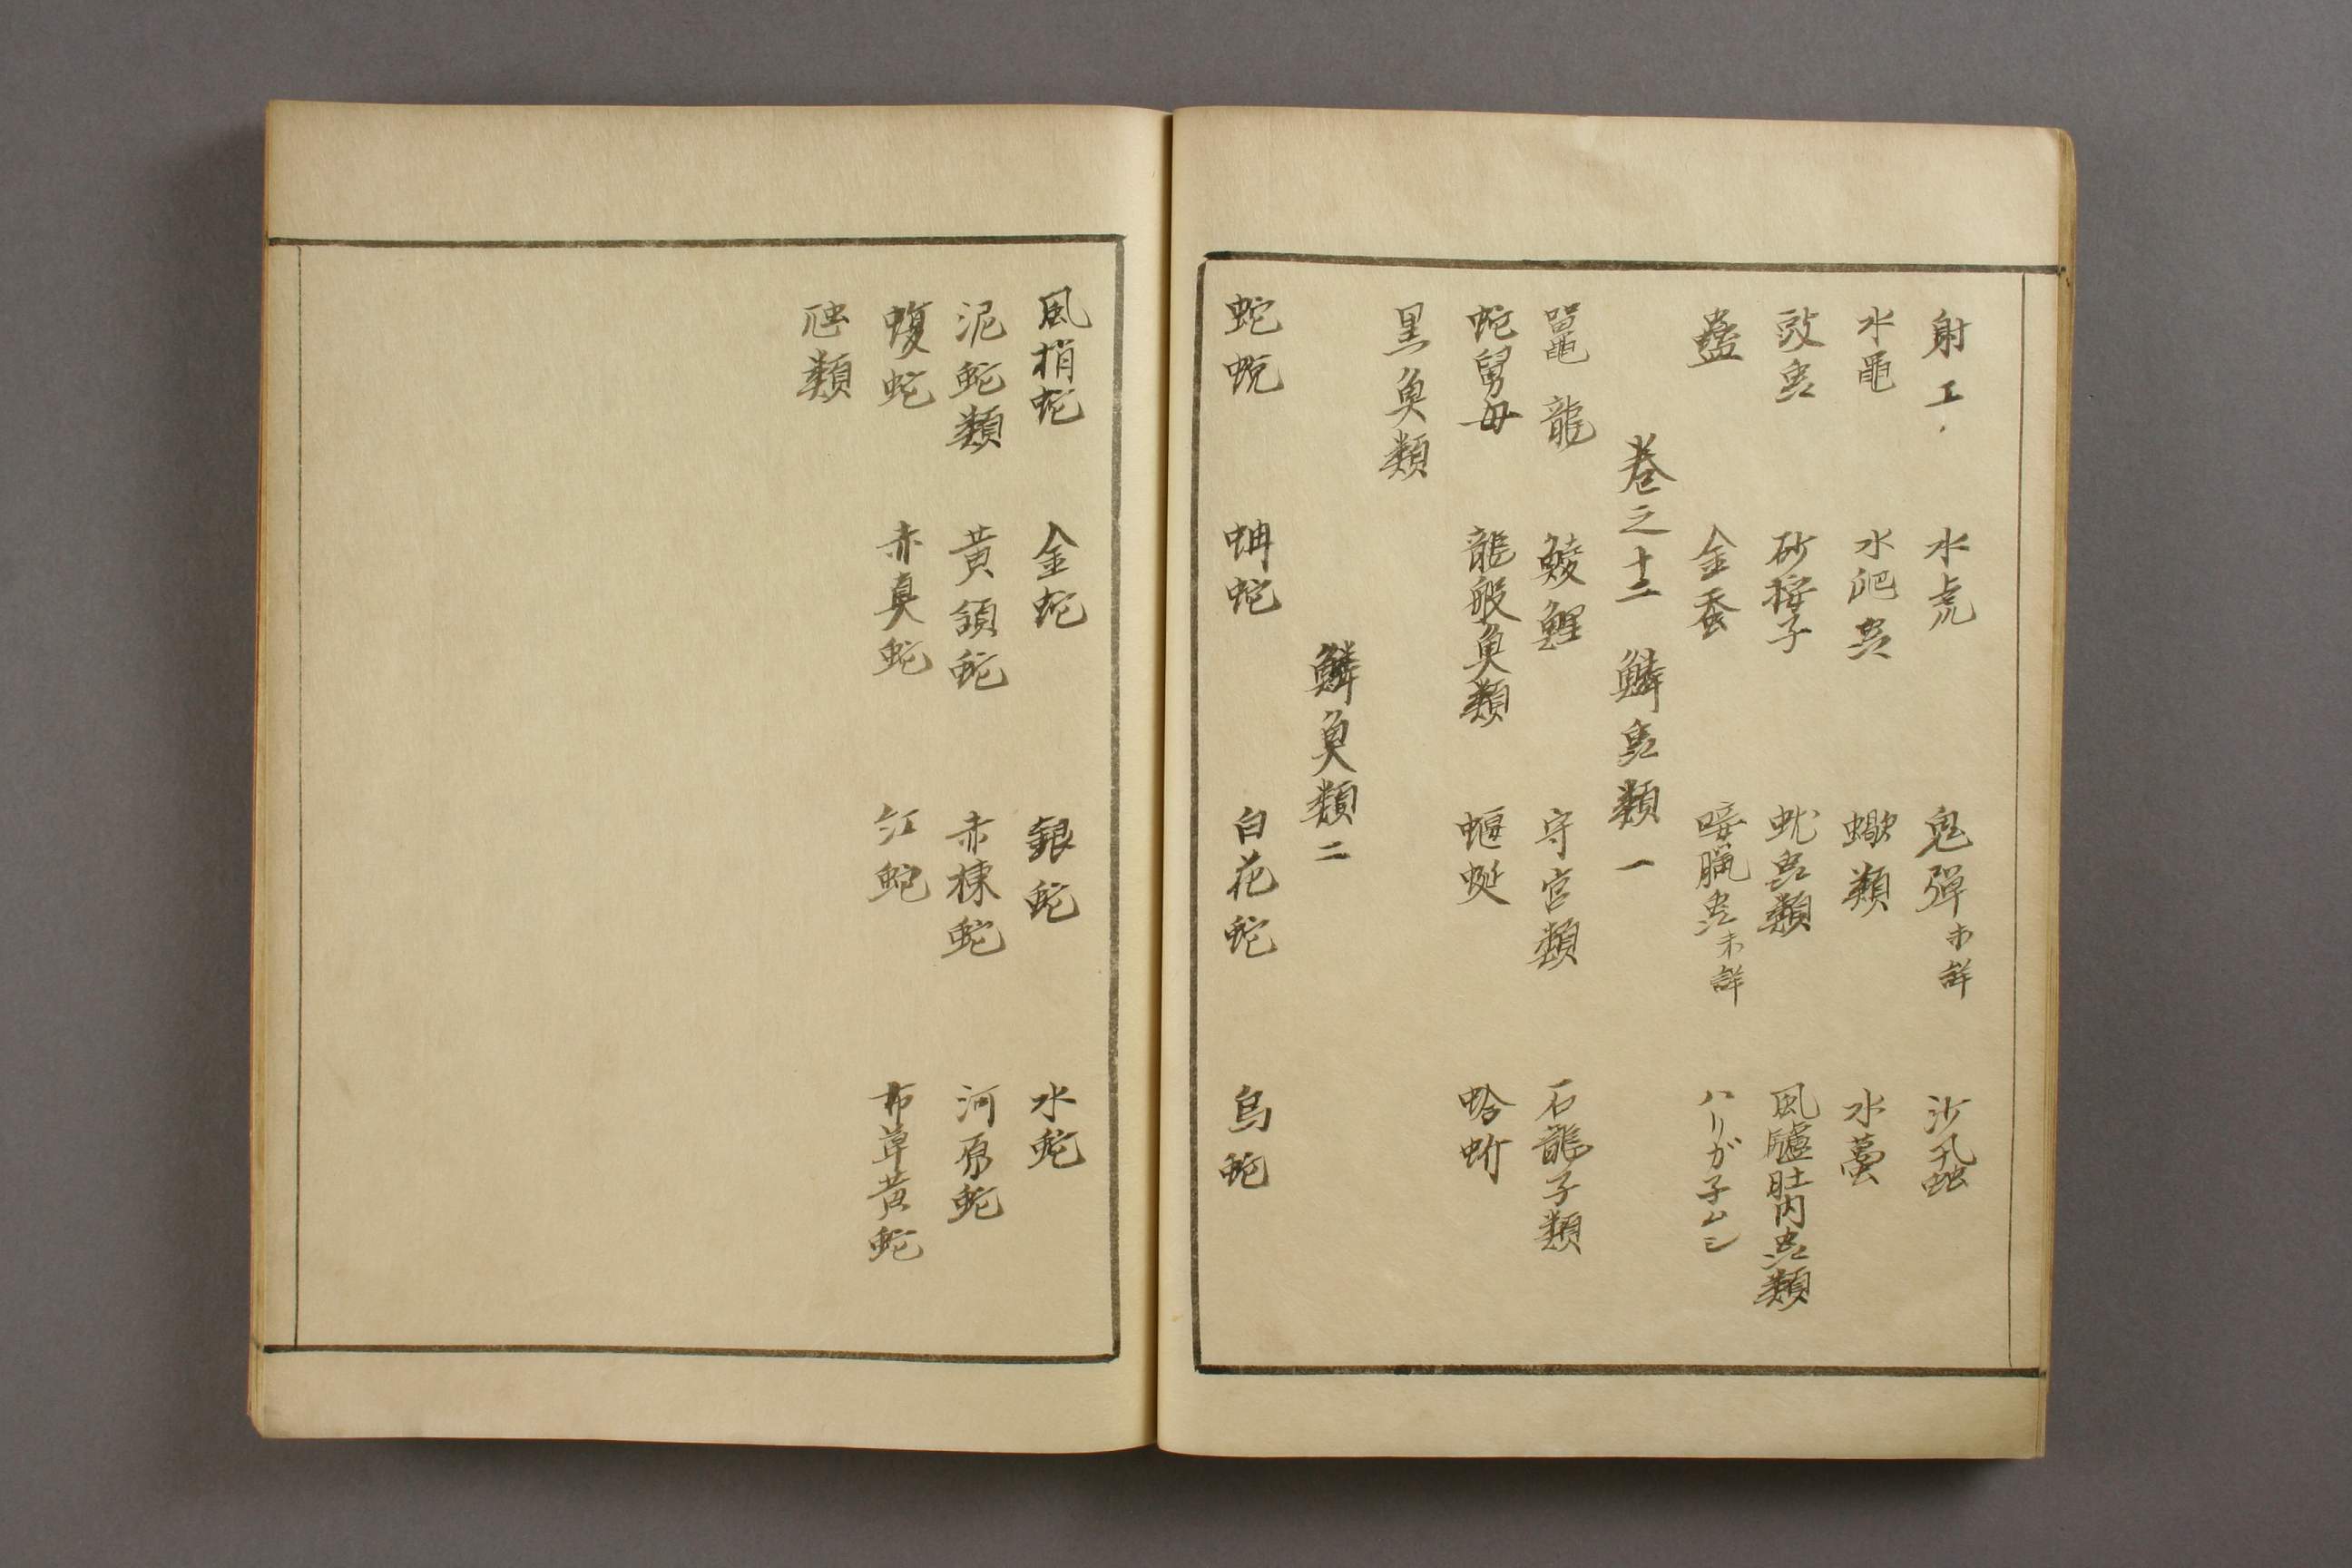 射工 水虎 鬼彈未詳 沙虱
水黽 水爬虫 蠍類 水蠆
豉虫 砂挼子 蚘虫類 風驢肚内虫類
蠱 金蚕 唼臘虫未詳 ハリガ子ムシ
巻之十二 鱗虫類一
鼉龍 鯪鯉 守宮類 石龍子類
蛇舅母 龍般魚類 蝘蜓 蛤蚧
黒魚類
鱗魚類二
蛇蛻 蚺蛇 白花蛇 烏蛇
風梢蛇 金蛇 銀蛇 水蛇
泥蛇類 黄頷蛇 赤楝蛇 河原蛇
蝮蛇 赤真蛇 紅蛇 布草黄蛇
虺類